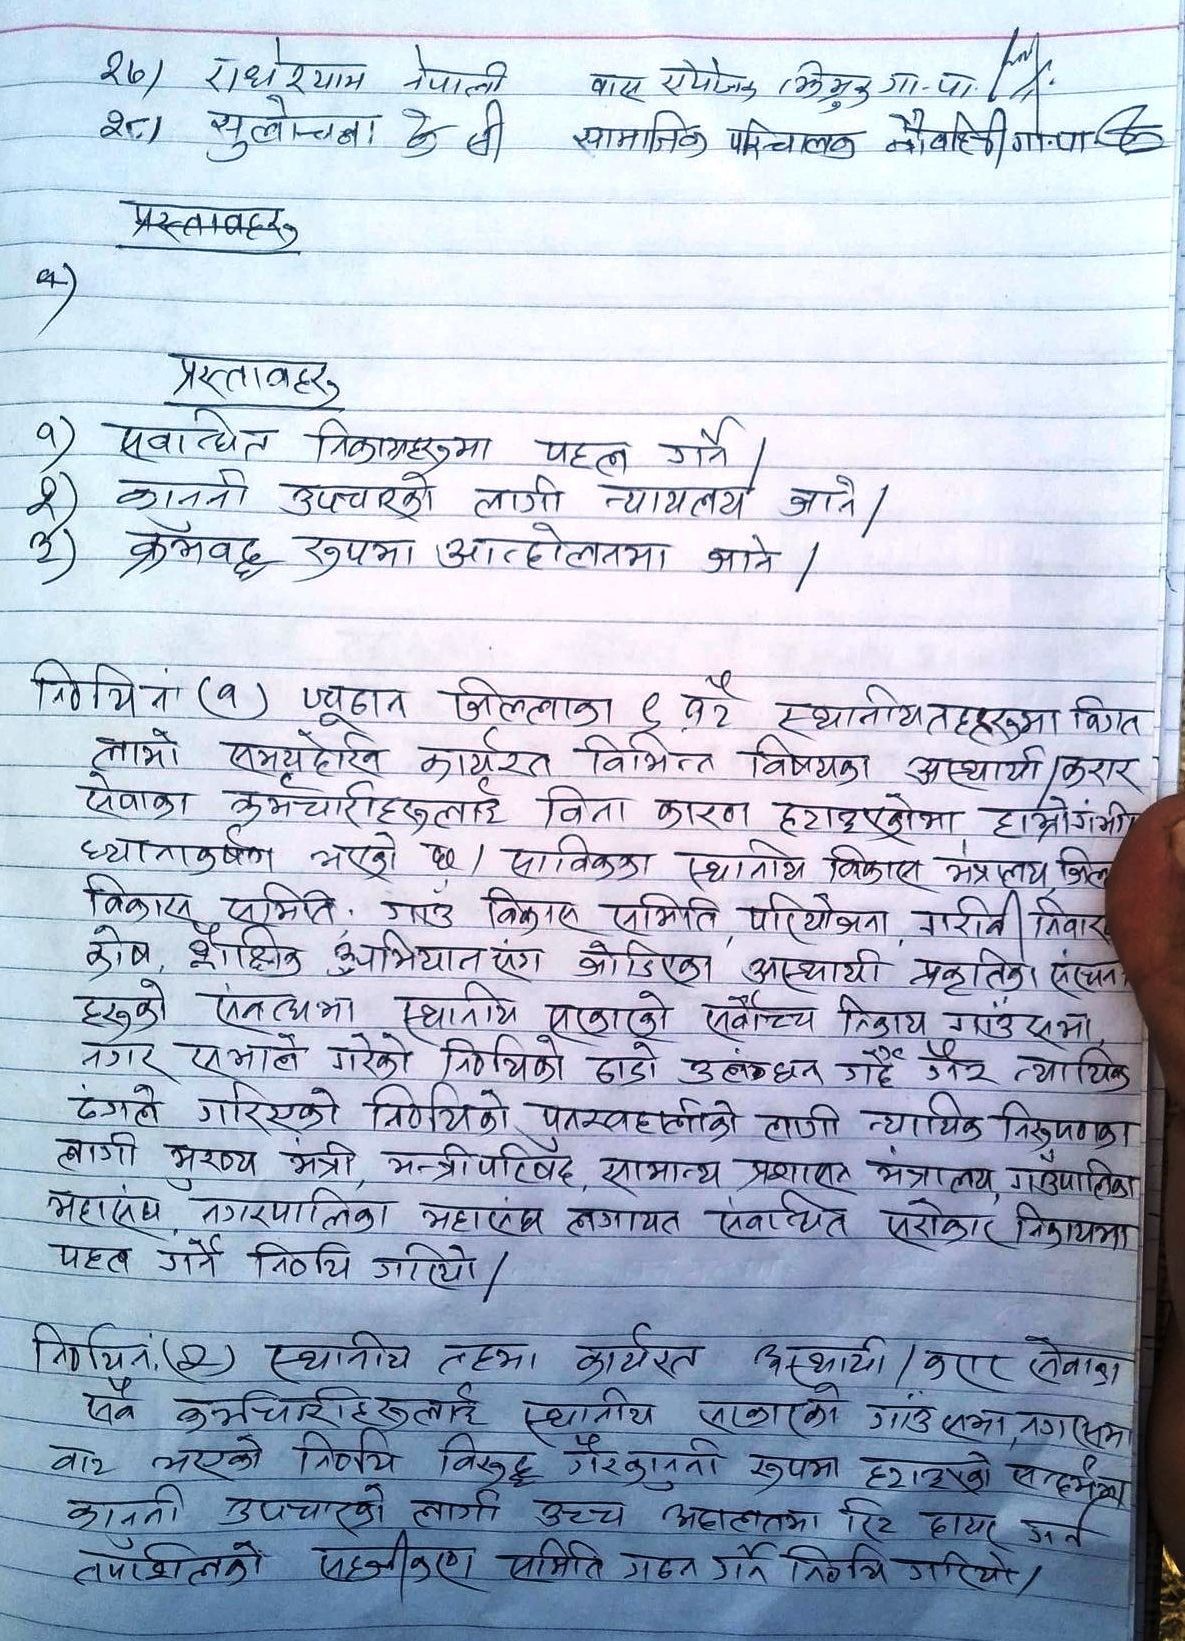 २७) राधेश्याम नेपाली वास संयोजक झिमरुक गा.पा.
२८) सुलोचना के सी सामाजिक परिचालक नौवहिनी गा.पा
प्रस्तावहरु
१)
प्रस्तावहरु
१) सवान्धित निकायहरुमा पहल गर्ने |
२) कानुनी उपचारको लागी न्यायलय जाने |
३) क्रमवद्ध रुपमा आन्दोलनमा जाने |
निर्णय नं (१) प्यूठान जिल्लाका ९ वटै स्थानीय तहहरुमा विगत
लामो समयदेखि कार्यरत विभिन्न विषयका अस्थायी/करार
सेवाका कर्मचारीहरुलाई विना कारण हटाइएकोमा हाम्रो गंभीर
ध्यानाकर्षण भएको छ | साविकका स्थानीय विकास मंत्रालय, जिल्
विकास समिति, गाउँ विकास समिति, परियोजना, गरीवी निवार
कोष, शैक्षिक अभियान संग जोडिएका अस्थायी प्रकृतिका संरचना
हरुको संवन्धमा स्थानीय सरकारको सर्वोच्च निकाय गाउँ सभा,
नगर सभाले गरेको निर्णयको ठाडो उलंघन गर्दै गैर न्यायिक
ढंगले गरिएको निर्णयको पुनरवहालीको लागी न्यायिक निरुपणका
लागी मुख्य मंत्री, मन्त्रीपरिषद, सामान्य प्रशासन मंत्रालय, गाउपालिका
महासंघ, नगरपालिका महासंघ लगायत संवान्धित सरोकार निकायमा
पहल गर्ने निर्णय गरियो |
निर्णय नं. (२) स्थानीय तहमा कार्यरत अस्थायी / करार सेवाका
सवै कर्मचारीहरुलाई स्थानीय सरकारको गाउँ सभा, नगरसभा
वाट भएको निर्णय विरुद्ध गैरकानुनी रुपमा हटाइएको सन्दर्भमा
कानुनी उपचारको लागी उच्च अदालतमा रिट दायर गर्न
तपाशिलको सहजीकरण समिति गठन गर्ने निर्णय गरियो |